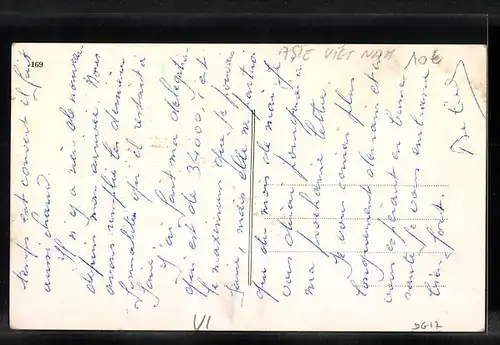 169
ASIE VIÊT NAM 10€
temps est couvert il fait
aussi chaud.
Il n'y a rien de nouveau
depuis mon arrivée. Nous
avons remplie les dernières
formalités qu'il restait à
faire.
J'ai fait ma délégation
qui est de 34000, c'est
le maximum que je pouvais
faire, mais elle ne partira
qu'au mois de mai je
vous dirai pourquoi à
ma prochaine lettre.
Je vous écrirai plus
longuement demain et
vous espérant en bonne
santé je vous embrasse
bien fort.
VI
DG17